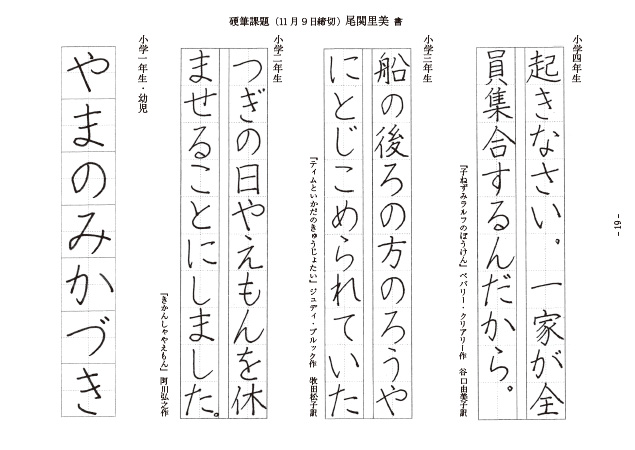 硬筆課題（11月９日締切）尾関里美 書
小学四年生
起きなさい。一家が全
員集合するんだから。
『子ねずみラルフのぼうけん』ベバリー・クリアリー作 谷口由美子訳
小学三年生
船の後ろの方のろうや
にとじこめられていた
『ティムといかだのきゅうじょたい』ジュディ・ブルック作 牧田松子訳
小学二年生
つぎの日やえもんを休
ませることにしました。
『きかんしゃやえもん』阿川弘之作
小学１年生・幼児
やまのみかづき
- 19 -